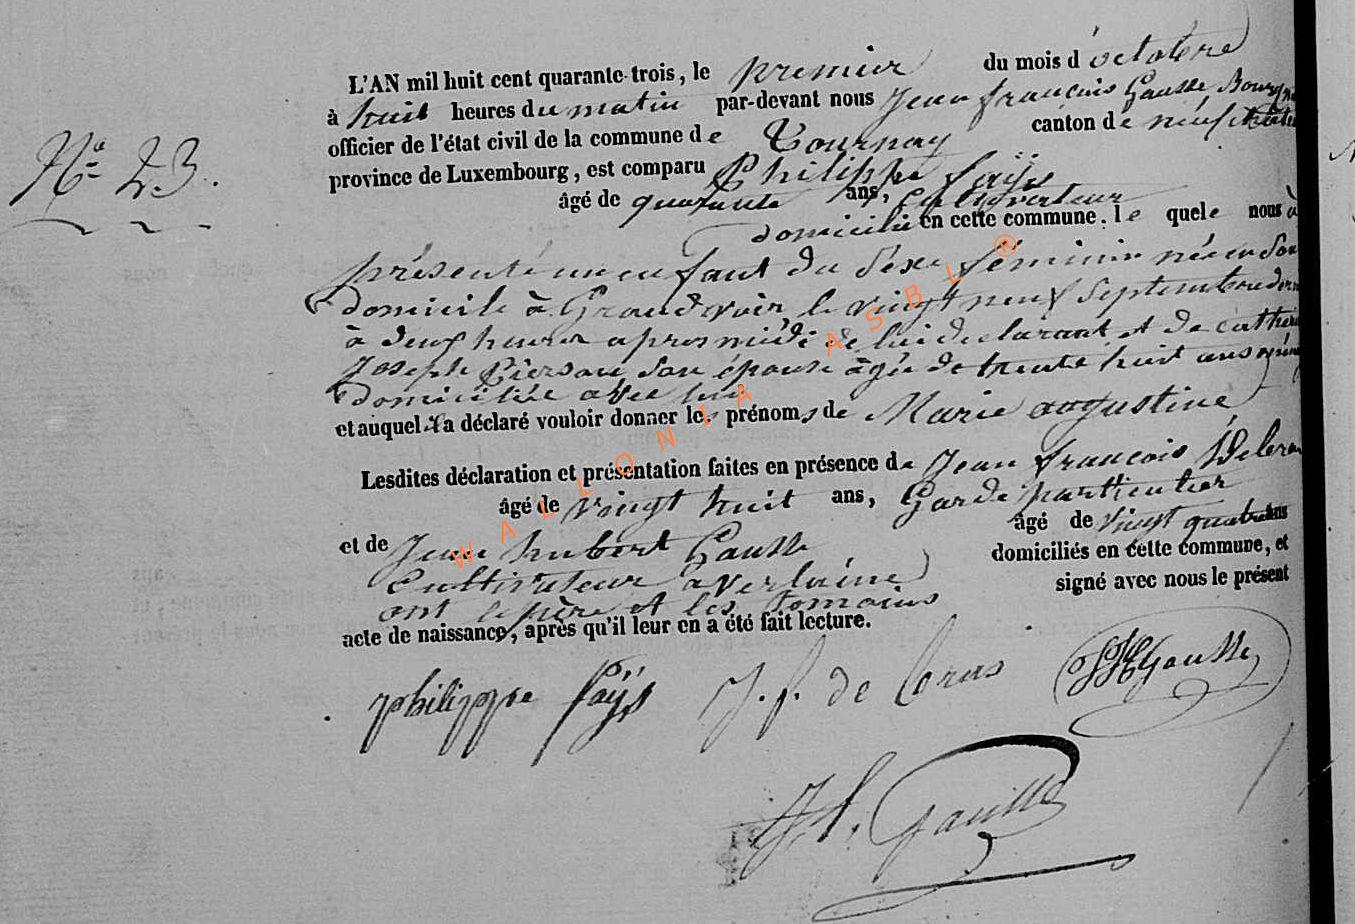 L'AN mil huit cent quarante-trois, le premier du mois d'octobre
à huit heures du matin par-devant nous Jean françois Gausse Bourgm
officier de l'état civil de la commune de Tournay canton de neufchateau
province de Luxembourg, est comparu Philippe faÿs
Nº 23.
âgé de quarante ans, cultivateur
domicilié en cette commune. le quel e nous à
présenté un enfant du Sexe féminin née en Son
domicile à Grandvoir le vingt neuf Septembre dern
à deux heures apres midi de lui declarant et de catherine
Joseph Pierson Son épouse âgée de trente huit ans
domiciliée avec lui
et auquel il a déclaré vouloir donner les prénoms de Marie augustine
Lesdites déclaration et présentation faites en présence de Jean françois Delcra
âgé de vingt huit ans, Garde particulier
et de Jean hubert Gausse âgé de vingt quatre ans
Cultivateur à verlaine domiciliés en cette commune, et
ont le père et les temoins signé avec nous le présent
acte de naissance, après qu'il leur en a été fait lecture.
philippe faÿs J. f. de Cras JHGausse
J f. Gausse
WALLONIA ASBL ®